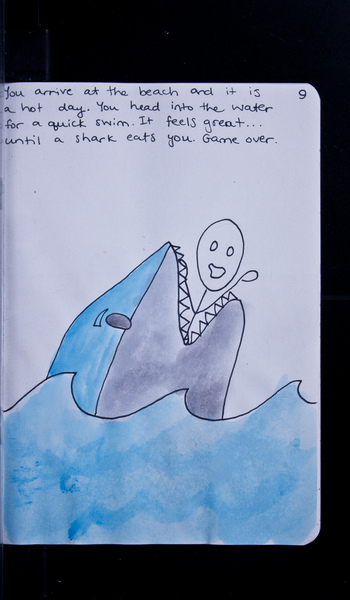 You arrive at the beach and it is 9
a hot day. You head into the water
for a quick swim. It feels great...
until a shark eats you. Game over.